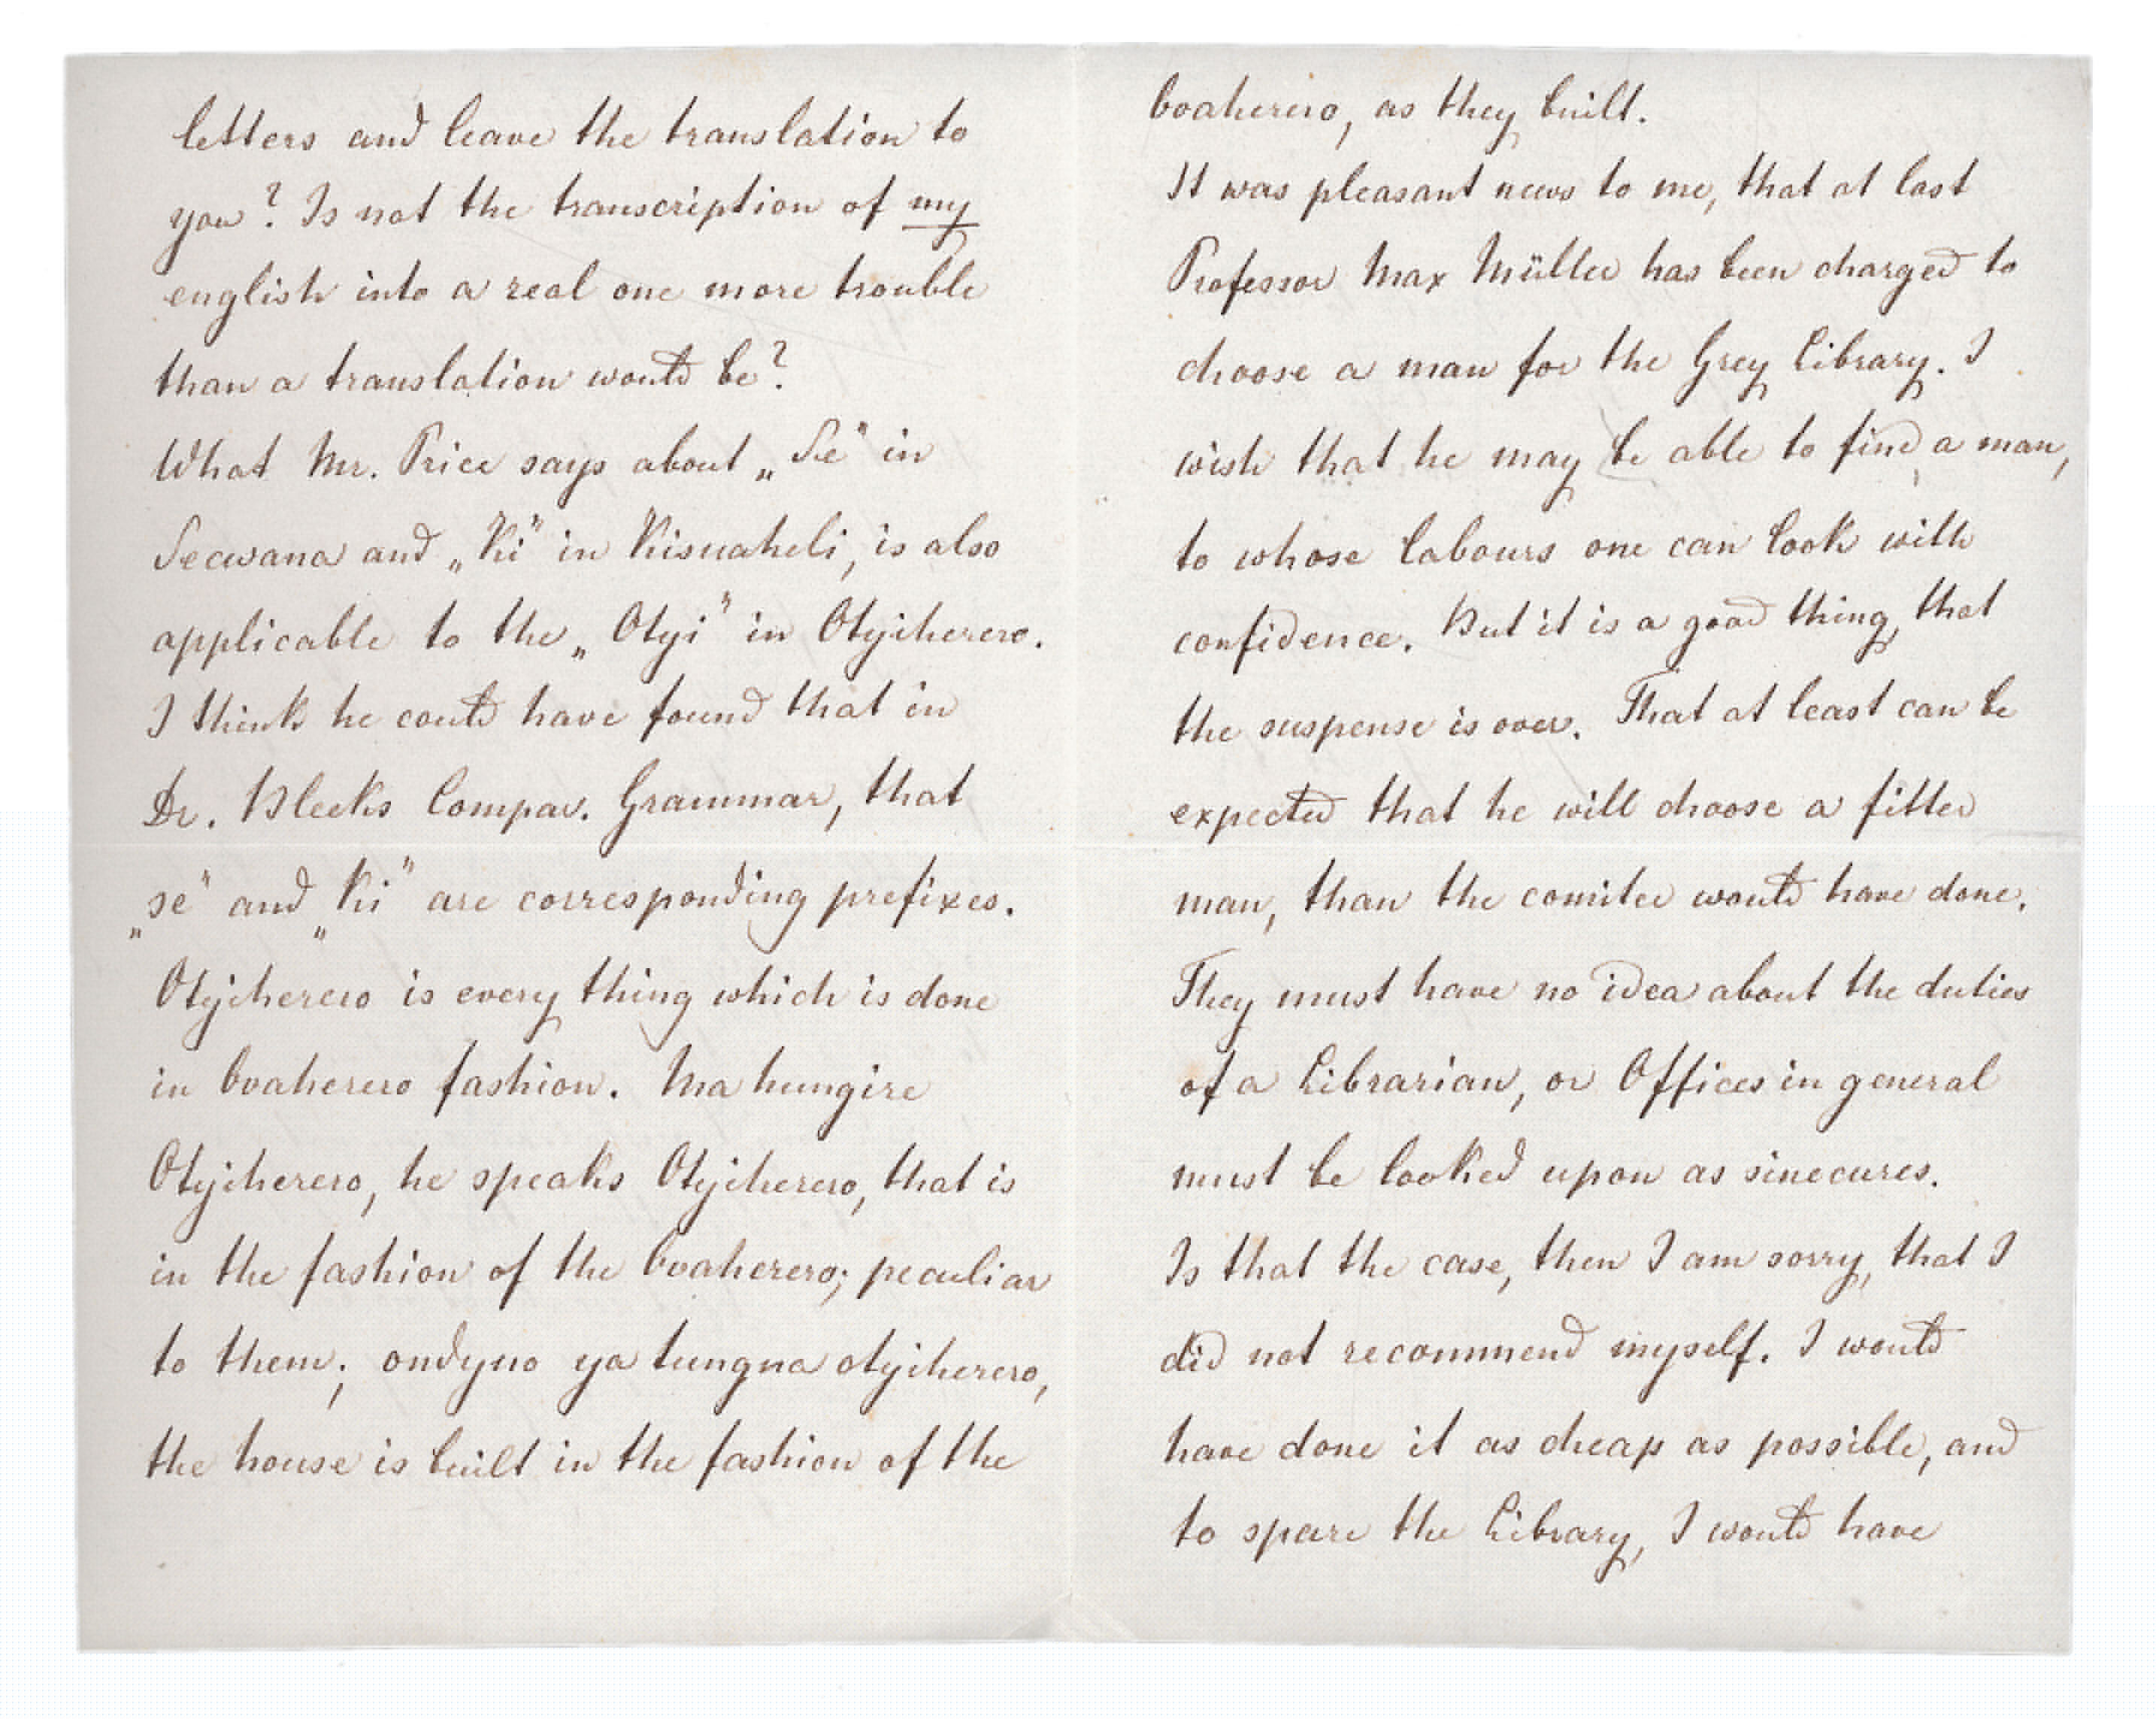 letters and leave the translation to
you? Is not the transcription of my
english into a real one more trouble
than a translation would be?
What Mr. Price says about „Se" in
Secwana and „Ki" in Kisuaheli, is also
applicable to the „Otyi" in Otyiherero.
I think he could have found that in
Dr. Bleeks Compar. Grammar, that
„se" and „Ki" are corresponding prefixes.
Otyiherero is every thing which is done
in Ovaherero fashion. Ma hungire
Otyiherero, he speaks Otyiherero, that is
in the fashion of the Ovaherero; peculiar
to them; ondyuo ya tungua otyiherero,
the house is built in the fashion of the
Ovaherero, as they built.
It was pleasant news to me, that at last
Professor Max Müller has been charged to
choose a man for the Grey Library. I
wish that he may be able to find a man,
to whose labours one can look with
confidence. But it is a good thing, that
the suspense is over. That at least can be
expected that he will choose a fitter
man, than the comitee would have done.
They must have no idea about the duties
of a Librarian, or Offices in general
must be looked upon as sinecures.
Is that the case, then I am sorry, that I
did not recommend myself. I would
have done it as cheap as possible, and
to spare the Library, I would have